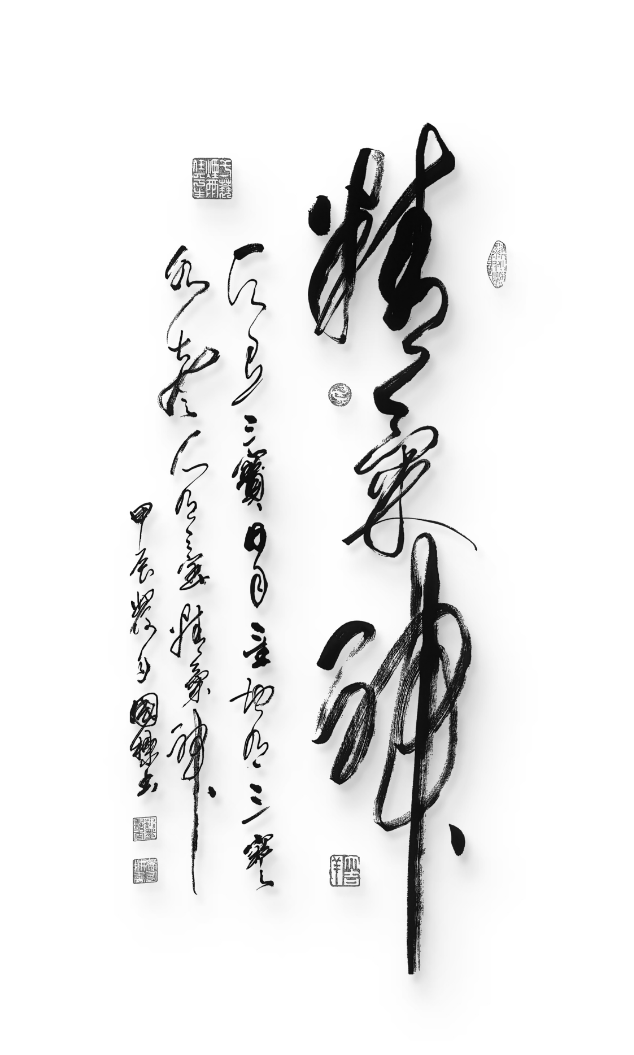 精氣神
天有三寶日月星地有三寶
水火風人有三寶精氣神
甲辰月國書
大吉羊